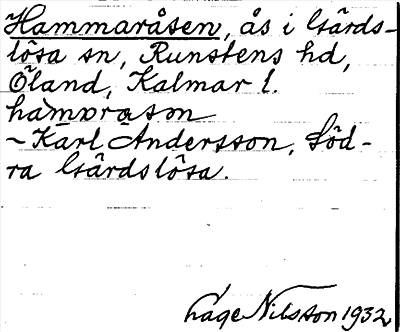 Hammaråsen, ås i Gärds-
lösa sn, Runstens hd,
Öland, Kalmar l.
hamɒrason
~ Karl Andersson, Söd-
ra Gärdslösa.
Åage Nilsson 1932